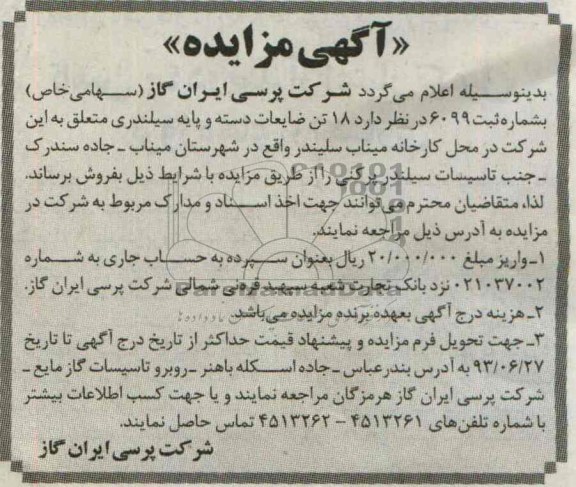 «آگهی مزایده»
بدینوسیله اعلام می‌گردد شرکت پرسی ایران گاز (سهامی خاص)
بشماره ثبت ۶۰۹۹ در نظر دارد ۱۸ تن ضایعات دسته و پایه سیلندری متعلق به این
شرکت در محل کارخانه میناب سلیندر واقع در شهرستان میناب ـ جاده سندرک
ـ جنب تاسیسات سیلندر پرکنی را از طریق مزایده با شرایط ذیل بفروش برساند.
لذا، متقاضیان محترم می‌توانند جهت اخذ اسناد و مدارک مربوط به شرکت در
مزایده به آدرس ذیل مراجعه نمایند.
۱ـ واریز مبلغ ۲۰/۰۰۰/۰۰۰ ریال بعنوان سپرده به حساب جاری به شماره
۰۲۱۰۳۷۰۰۲ نزد بانک تجارت شعبه سپهبد قرنی شمالی شرکت پرسی ایران گاز.
۲ـ هزینه درج آگهی بعهده برنده مزایده می‌باشد.
۳ـ جهت تحویل فرم مزایده و پیشنهاد قیمت حداکثر از تاریخ درج آگهی تا تاریخ
۹۳/۰۶/۲۷ به آدرس بندرعباس ـ جاده اسکله باهنر ـ روبرو تاسیسات گاز مایع ـ
شرکت پرسی ایران گاز هرمزگان مراجعه نمایند و یا جهت کسب اطلاعات بیشتر
با شماره تلفن‌های ۴۵۱۳۲۶۱ – ۴۵۱۳۲۶۲ تماس حاصل نمایند.
شرکت پرسی ایران گاز